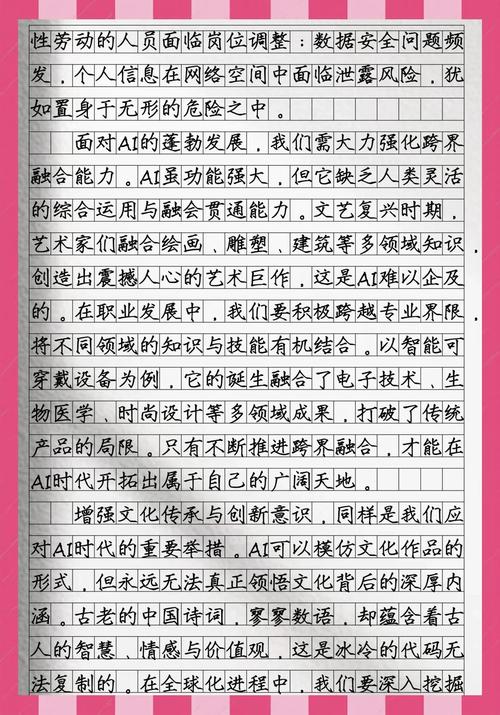 性劳动的人员面临岗位调整：数据安全问题频
发，个人信息在网络空间中面临泄露风险，犹
如置身于无形的危险之中。
面对AI的蓬勃发展，我们需大力强化跨界
融合能力。AI虽功能强大，但它缺乏人类灵活
的综合运用与融会贯通能力。文艺复兴时期，
艺术家们融合绘画、雕塑、建筑等多领域知识，
创造出震撼人心的艺术巨作，这是AI难以企及
的。在职业发展中，我们要积极跨越专业界限，
将不同领域的知识与技能有机结合。以智能可
穿戴设备为例，它的诞生融合了电子技术、生
物医学、时尚设计等多领域成果，打破了传统
产品的局限。只有不断推进跨界融合，才能在
AI时代开拓出属于自己的广阔天地。
增强文化传承与创新意识，同样是我们应
对AI时代的重要举措。AI可以模仿文化作品的
形式，但永远无法真正领悟文化背后的深厚内
涵。古老的中国诗词，寥寥数语，却蕴含着古
人的智慧、情感与价值观，这是冰冷的代码无
法复制的。在全球化进程中，我们要深入挖掘